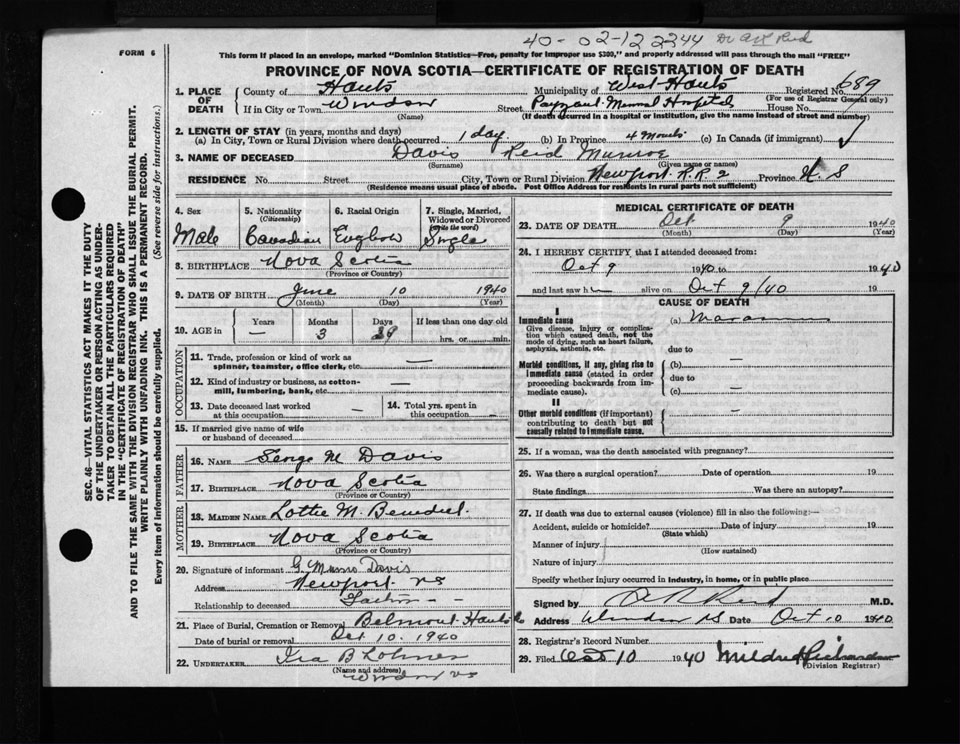 40-02-12 2344 Dr A R Reid
FORM 6
This form if placed in an envelope, marked "Dominion Statistics—Free, penalty for improper use $300," and properly addressed will pass through the mail "FREE"
PROVINCE OF NOVA SCOTIA—CERTIFICATE OF REGISTRATION OF DEATH
1. PLACE OF DEATH County of Hants Municipality of West Hants Registered No. 689
(For use of Registrar General only)
If in City or Town Windsor Street Payzant Memorial Hospital House No.
(Name) (If death occurred in a hospital or institution, give the name instead of street and number)
2. LENGTH OF STAY (in years, months and days)
(a) In City, Town or Rural Division where death occurred 1 day (b) In Province 4 Months (c) In Canada (if immigrant)
3. NAME OF DECEASED Davis Reid Munroe
(Surname) (Given name or names)
RESIDENCE No. Street City, Town or Rural Division Newport R.R 2 Province N. S
(Residence means usual place of abode. Post Office Address for residents in rural parts not sufficient)
4. Sex Male
5. Nationality (Citizenship) Canadian
6. Racial Origin English
7. Single, Married, Widowed or Divorced (write the word) Single
8. BIRTHPLACE Nova Scotia
(Province or Country)
9. DATE OF BIRTH June 10 1940
(Month) (Day) (Year)
10. AGE in Years — Months 3 Days 29 If less than one day old hrs. or min.
OCCUPATION
11. Trade, profession or kind of work as spinner, teamster, office clerk, etc. —
12. Kind of industry or business, as cotton-mill, lumbering, bank, etc. —
13. Date deceased last worked at this occupation —
14. Total yrs. spent in this occupation —
15. If married give name of wife or husband of deceased
FATHER
16. NAME George M Davis
17. BIRTHPLACE Nova Scotia
(Province or Country)
MOTHER
18. MAIDEN NAME Lottie M.
19. BIRTHPLACE Nova Scotia
(Province or Country)
20. Signature of informant G. Munro Davis
Address Newport NS
Relationship to deceased Father
21. Place of Burial, Cremation or Removal Belmont Hants Co
Date of burial or removal Oct 10. 1940
22. UNDERTAKER Ira B Lohnes
(Name and address)
Windsor NS
MEDICAL CERTIFICATE OF DEATH
23. DATE OF DEATH Oct 9 1940
(Month) (Day) (Year)
24. I HEREBY CERTIFY that I attended deceased from:
Oct 9 1940 to 1940
and last saw h alive on Oct 9/40 19
CAUSE OF DEATH
I
Immediate cause (a) Marasmus
Give disease, injury or complication which caused death, not the mode of dying, such as heart failure, asphyxia, asthenia, etc.
due to
Morbid conditions, if any, giving rise to immediate cause (stated in order proceeding backwards from immediate cause). (b) —
due to
(c) —
II
Other morbid conditions (if important) contributing to death but not causally related to immediate cause. —
25. If a woman, was the death associated with pregnancy?
26. Was there a surgical operation? Date of operation 19
State findings Was there an autopsy?
27. If death was due to external causes (violence) fill in also the following:—
Accident, suicide or homicide? Date of injury 19
(State which)
Manner of injury
(How sustained)
Nature of injury
Specify whether injury occurred in industry, in home, or in public place
Signed by A R Reid M.D.
Address Windsor NS Date Oct 10 1940
28. Registrar's Record Number
29. Filed Oct 10 1940 Mildred Richardson
(Division Registrar)
SEC. 46—VITAL STATISTICS ACT MAKES IT THE DUTY
OF THE UNDERTAKER OR PERSON ACTING AS UNDER-
TAKER TO OBTAIN ALL THE PARTICULARS REQUIRED
IN THE "CERTIFICATE OF REGISTRATION OF DEATH"
AND TO FILE THE SAME WITH THE DIVISION REGISTRAR WHO SHALL ISSUE THE BURIAL PERMIT.
WRITE PLAINLY WITH UNFADING INK. THIS IS A PERMANENT RECORD.
Every item of information should be carefully supplied. (See reverse side for instructions.)